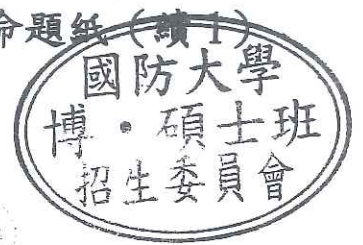 命題紙（續1）
國防大學
博·碩士班
招生委員會